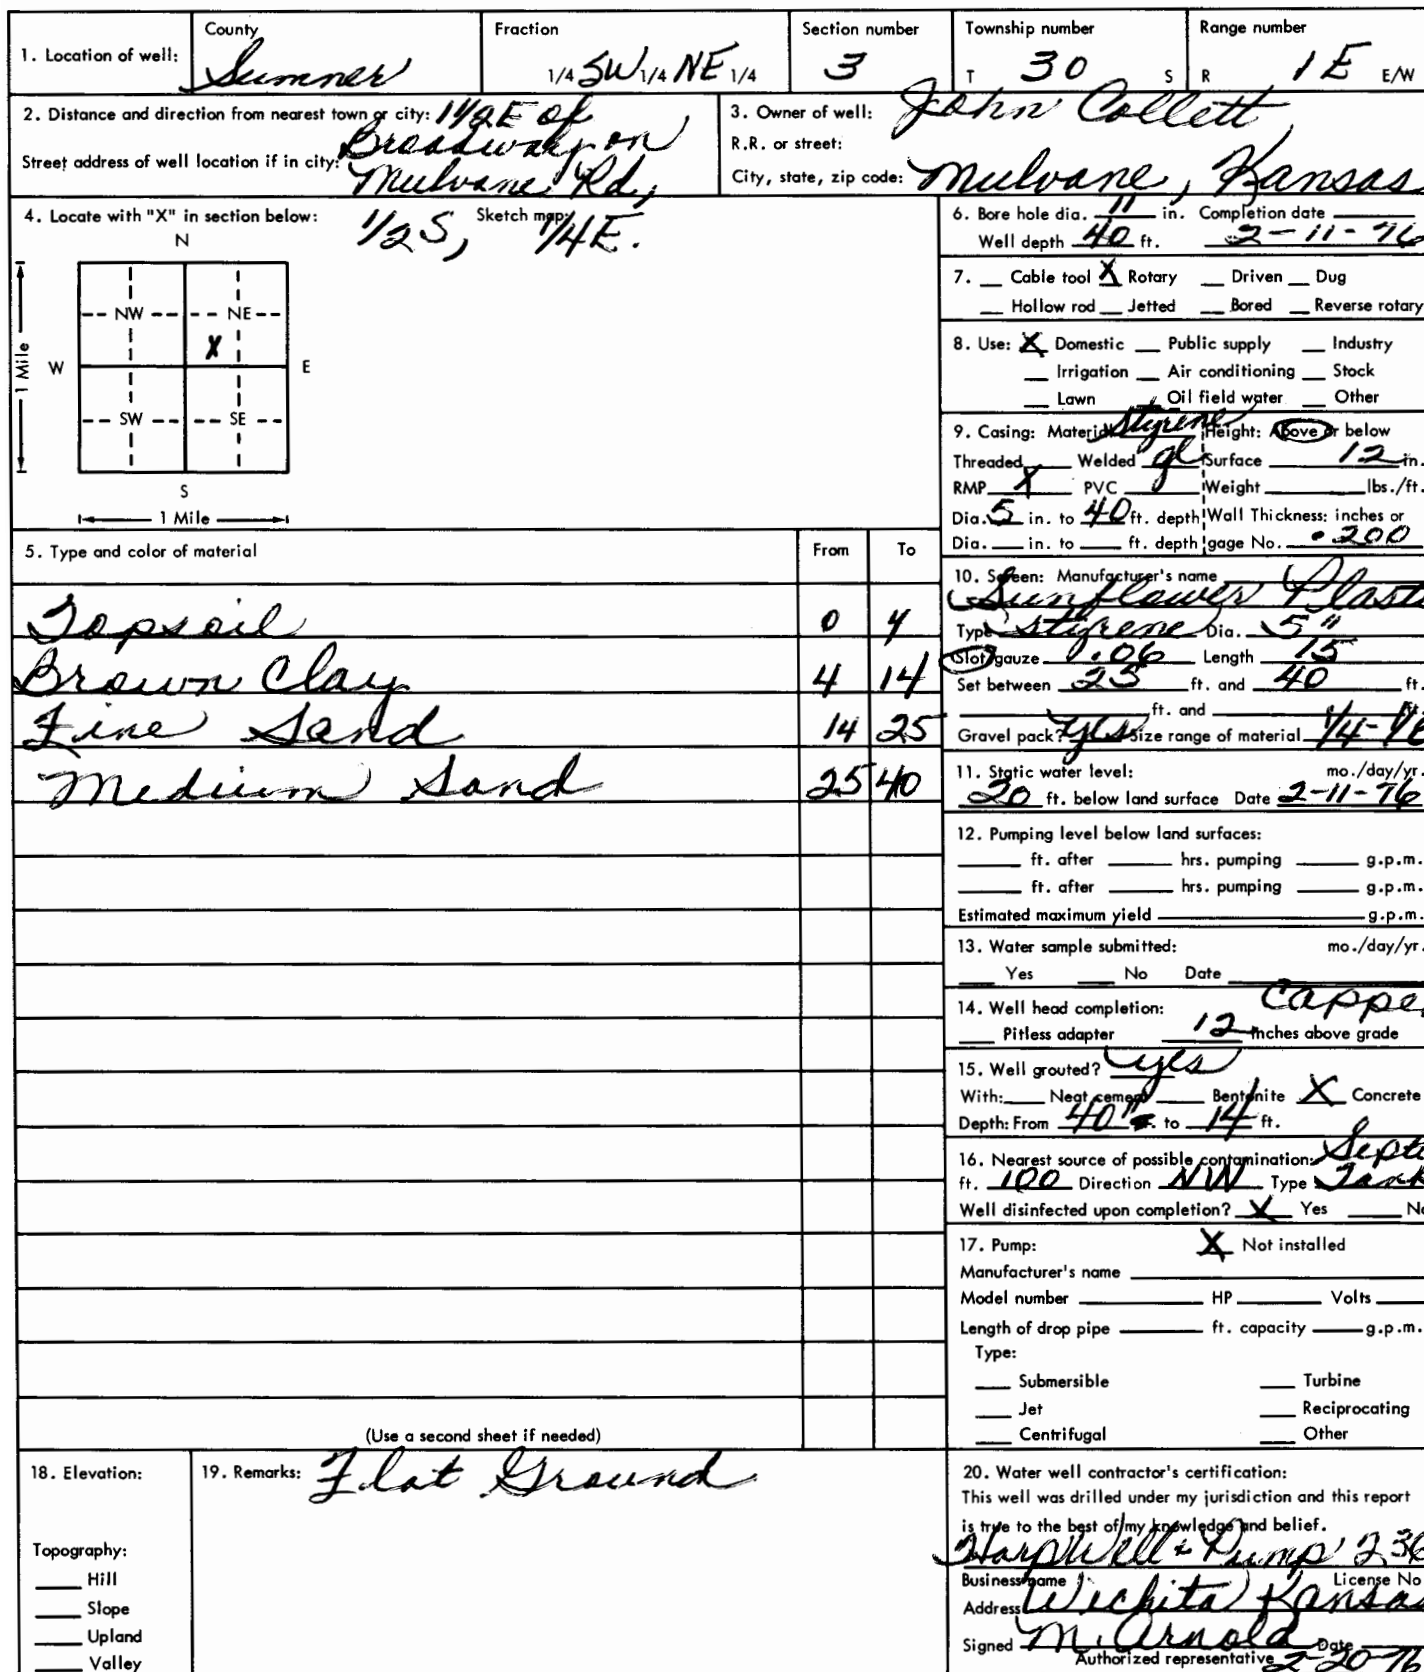 1. Location of well: County Sumner Fraction 1/4 SW 1/4 NE 1/4 Section number 3 Township number T 30 S Range number R 1E E/W
2. Distance and direction from nearest town or city: 1 1/2 E of
Broadway on
Street address of well location if in city: Mulvane Rd,
3. Owner of well: John Collett
R.R. or street:
City, state, zip code: Mulvane, Kansas
4. Locate with "X" in section below: 1/2 S, Sketch map: 1/4 E.
N
NW NE
X
W E
1 Mile
SW SE
S
1 Mile
5. Type and color of material From To
Topsoil 0 4
Brown Clay 4 14
Fine Sand 14 25
Medium Sand 25 40
(Use a second sheet if needed)
6. Bore hole dia. 11 in. Completion date
Well depth 40 ft. 2-11-76
7. Cable tool X Rotary Driven Dug
Hollow rod Jetted Bored Reverse rotary
8. Use: X Domestic Public supply Industry
Irrigation Air conditioning Stock
Lawn Oil field water Other
9. Casing: Material Styrene Height: Above or below
Threaded Welded gl Surface 12 in.
RMP X PVC Weight lbs./ft.
Dia. 5 in. to 40 ft. depth Wall Thickness: inches or
Dia. in. to ft. depth gage No. .200
10. Screen: Manufacturer's name
Sunflower Plasti
Type Styrene Dia. 5"
Slot/gauze .06 Length 15
Set between 25 ft. and 40 ft.
ft. and ft.
Gravel pack? yes Size range of material 1/4-1/8
11. Static water level: mo./day/yr.
20 ft. below land surface Date 2-11-76
12. Pumping level below land surfaces:
ft. after hrs. pumping g.p.m.
ft. after hrs. pumping g.p.m.
Estimated maximum yield g.p.m.
13. Water sample submitted: mo./day/yr.
Yes No Date
14. Well head completion: Capped
Pitless adapter 12 inches above grade
15. Well grouted? yes
With: Neat cement Bentonite X Concrete
Depth: From 40" to 14 ft.
16. Nearest source of possible contamination: Septi
ft. 100 Direction NW Type Tank
Well disinfected upon completion? X Yes No
17. Pump: X Not installed
Manufacturer's name
Model number HP Volts
Length of drop pipe ft. capacity g.p.m.
Type:
Submersible Turbine
Jet Reciprocating
Centrifugal Other
18. Elevation:
Topography:
Hill
Slope
Upland
Valley
19. Remarks: Flat Ground
20. Water well contractor's certification:
This well was drilled under my jurisdiction and this report
is true to the best of my knowledge and belief.
Harp Well & Pump 236
Business name License No
Address Wichita Kansas
Signed M. Arnold Date
Authorized representative 2-20-76